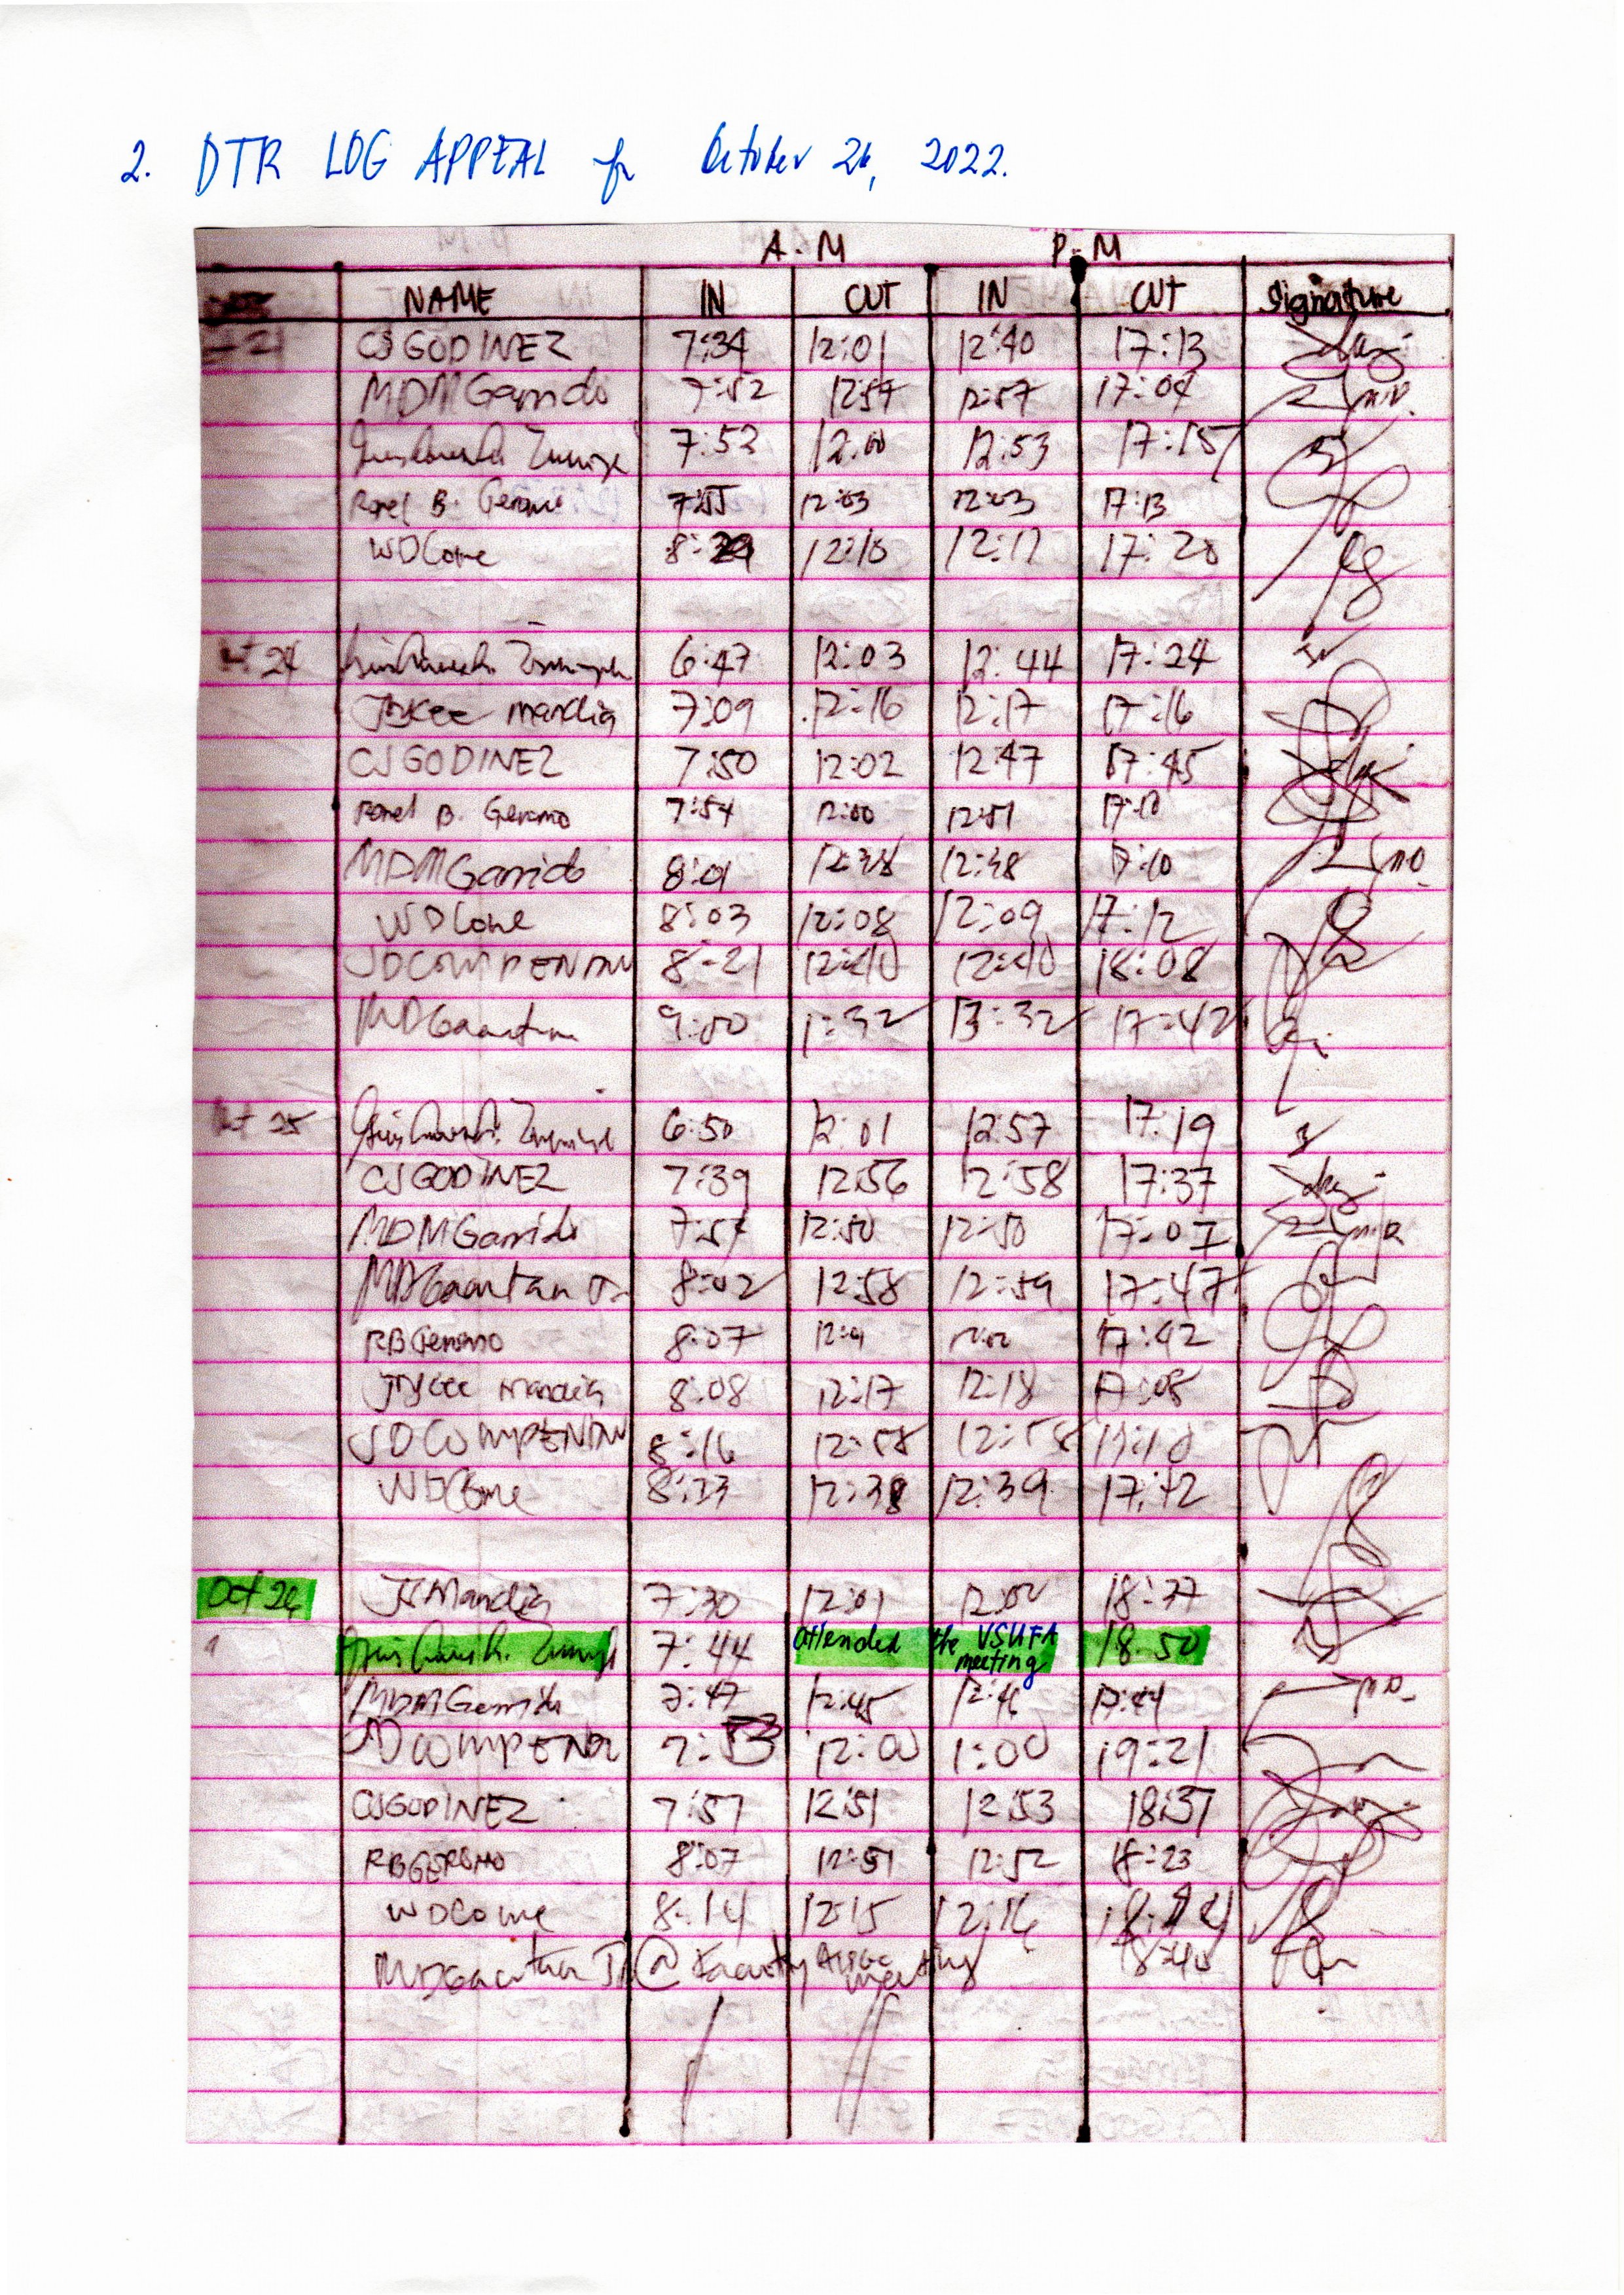 2. DTR LOG APPEAL for October 26, 2022.
A.M P.M
NAME IN OUT IN OUT Signature
21 CJGODINEZ 7:34 12:01 12:40 17:13
MDMGarrido 7:52 12:57 12:57 17:04
7:53 12:00 12:53 17:15
Ronel B. Geromo 7:55 12:03 12:03 17:13
WDCome 12:17 17:20
24 6:47 12:03 12:44 17:24
JayKee Mandia 7:09 12:16 12:17 17:16
CJGODINEZ 7:50 12:02 12:47 17:45
Ronel B. Geromo 7:54 12:00 12:51 17:10
MDMGarrido 8:01 12:38 12:38 17:10
WDCome 8:03 12:08 12:09 17:12
JDCOMPENDIU 8:21 12:40 12:40 18:08
9:50 13:32 17:42
25 6:50 12:01 12:57 17:19
CJGODINEZ 7:39 12:56 12:58 17:37
MDMGarrido 7:54 12:50 12:50 17:07
8:02 12:58 12:59 17:47
RBGeromo 8:07 17:42
JayKee Mandia 8:08 12:17 12:18 17:08
JDCOMPENDIU 8:16 12:58 12:58
WDCome 8:33 12:38 12:39 17:12
Oct 26 JKMandia 7:30 12:01 12:02 18:37
7:44 attended the VSUFA meeting 18:50
MDMGarrido 7:47 12:45 12:46 17:44
JDCOMPENDI 7:53 12:00 1:00 19:21
CJGODINEZ 7:57 12:51 12:53 18:37
RBGEROMO 8:07 12:51 12:52 18:23
WDCome 8:14 12:15 12:16
@ Faculty Assoc meeting 18:40